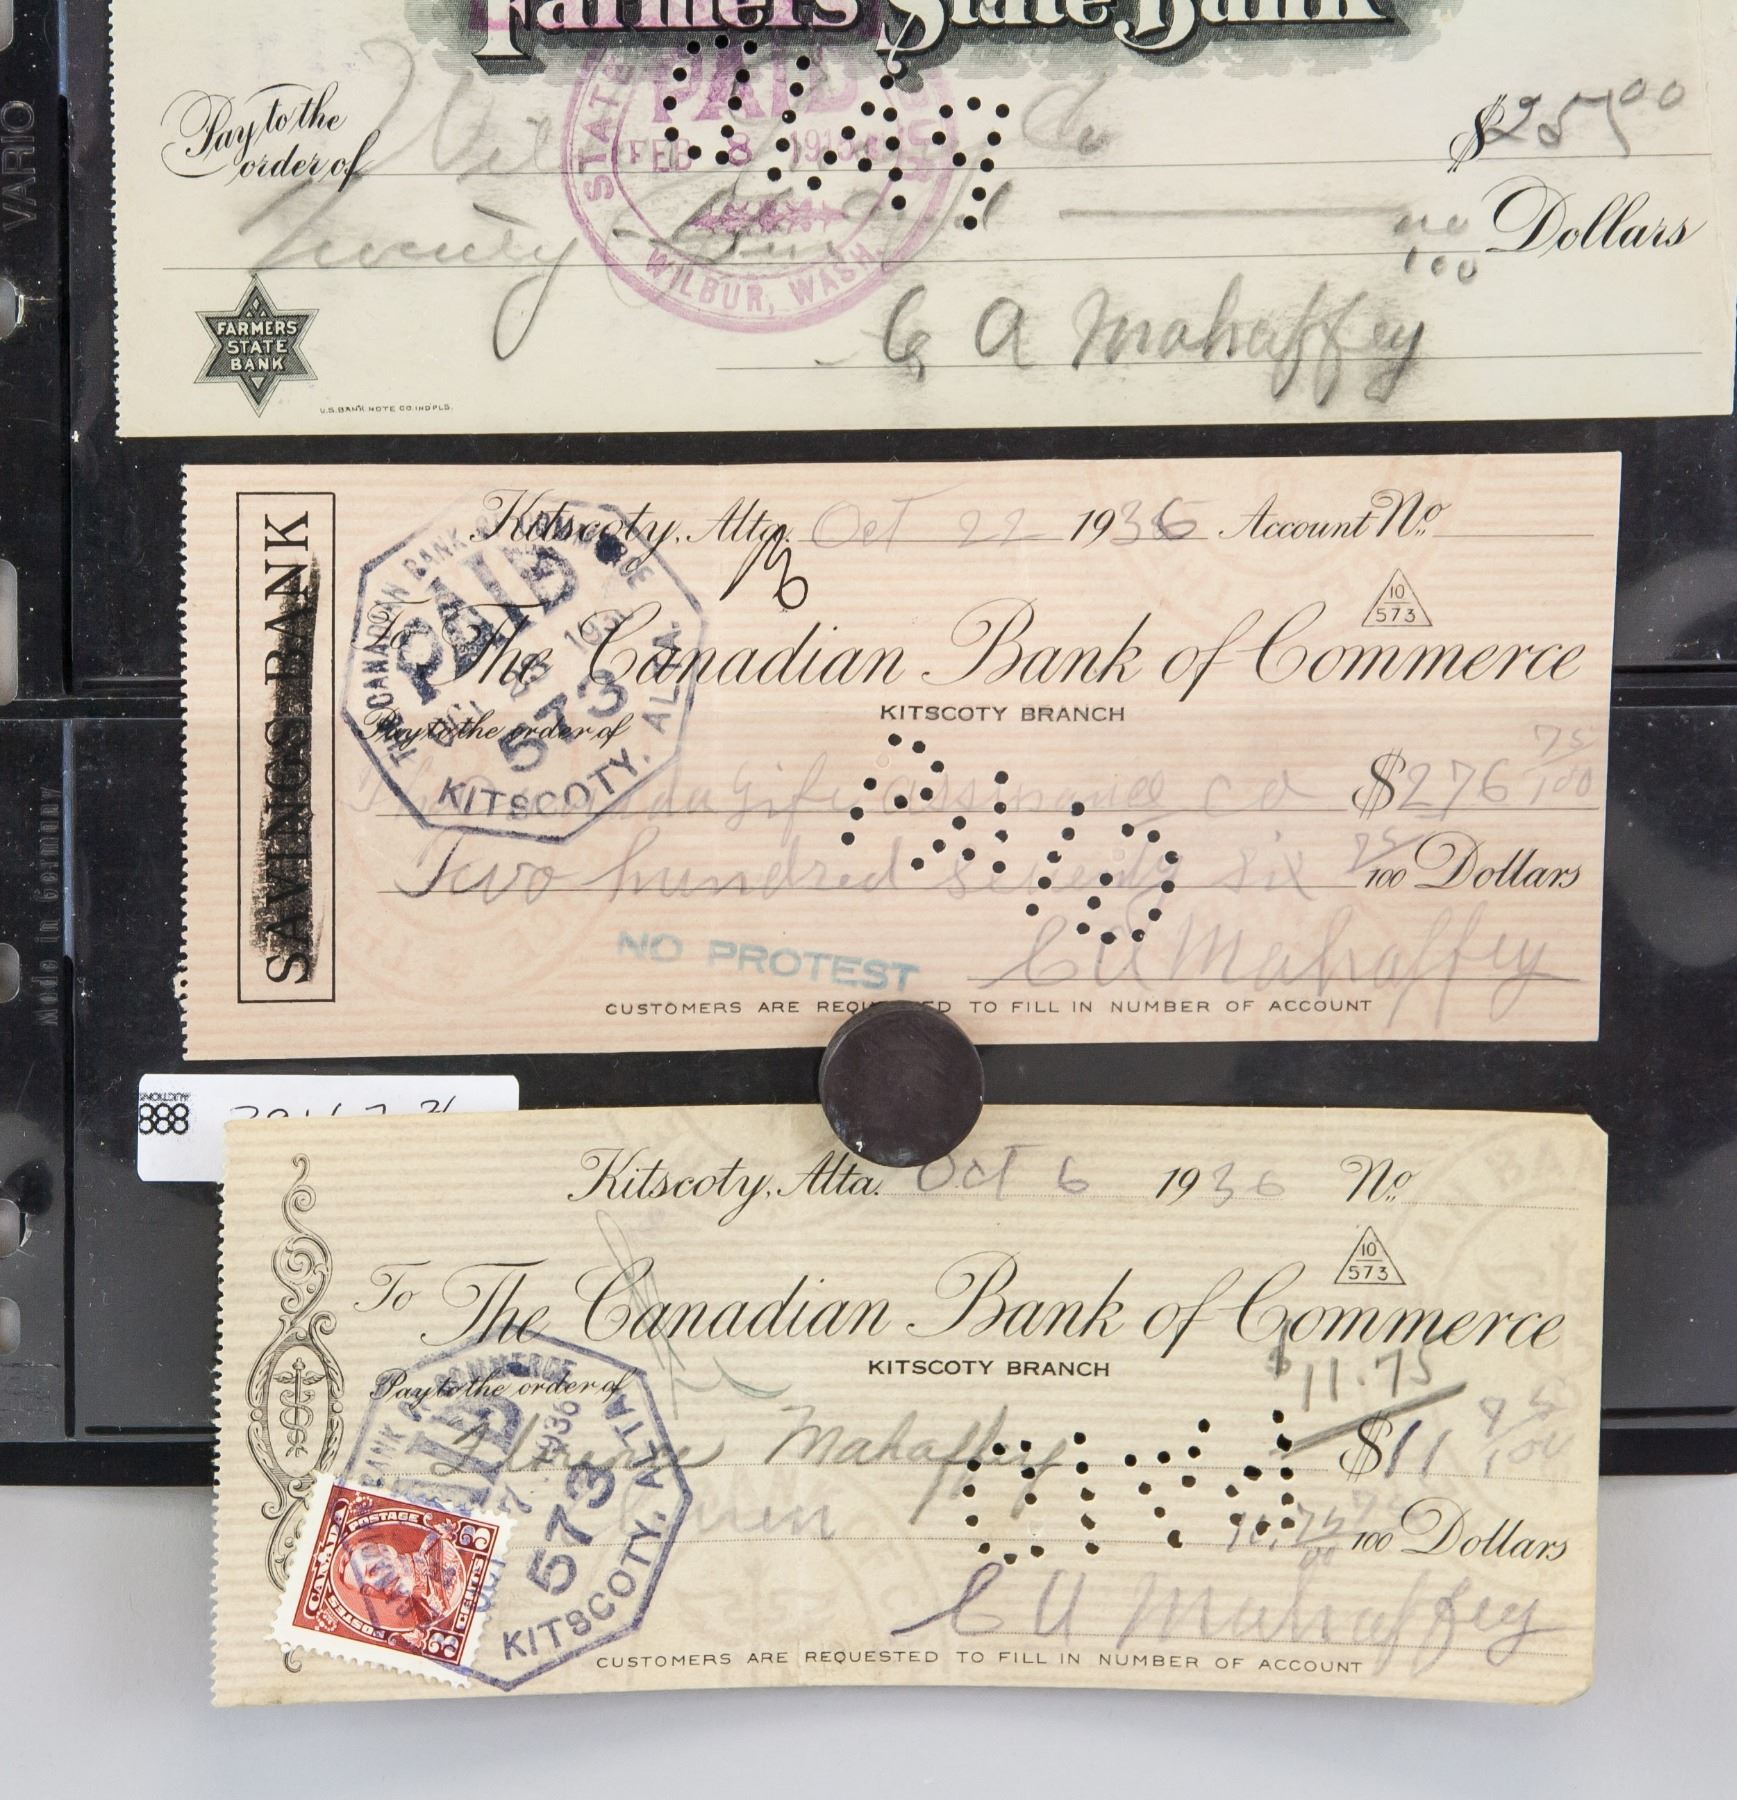 Farmers State Bank
Pay to the
order of
Co
$25 00
STATE
PAID
FEB 8
WILBUR, WASH.
Twenty
Dollars
00
100
C A Mahaffey
FARMERS
STATE
BANK
U.S. BANK NOTE CO. INDPLS.
VARIO
Made in Germany
SAVINGS BANK
Kitscoty, Alta. Oct 22 1936 Account No.
10
573
To The Canadian Bank of Commerce
KITSCOTY BRANCH
Pay to the order of
THE CANADIAN BANK OF COMMERCE
PAID
573
KITSCOTY, ALTA.
Life Assurance Co $276 75
100
Two hundred seventy six 75
100 Dollars
NO PROTEST
C A Mahaffey
CUSTOMERS ARE REQU ED TO FILL IN NUMBER OF ACCOUNT
888
AUCTIONS
Kitscoty, Alta. Oct 6 1936 No.
10
573
To The Canadian Bank of Commerce
KITSCOTY BRANCH
$11.75
Pay to the order of
Mahaffey $11 75
100
BANK OF COMMERCE
7 1936
573
KITSCOTY, ALTA.
100 Dollars
C A Mahaffey
CANADA
POSTAGE
POSTES
3 CENTS 3
CUSTOMERS ARE REQUESTED TO FILL IN NUMBER OF ACCOUNT